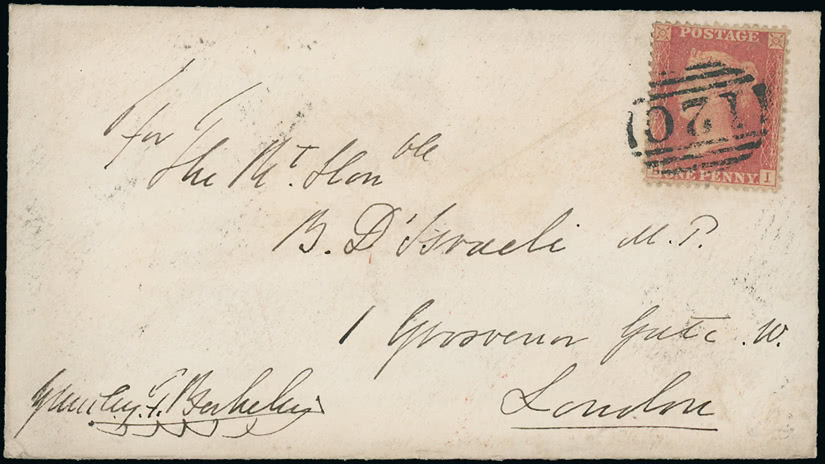 POSTAGE
ONE PENNY
I
for
The Rt. Honble
B. D'Israeli M.P.
1 Grosvenor Gate W.
London
Grantley F. Berkeley